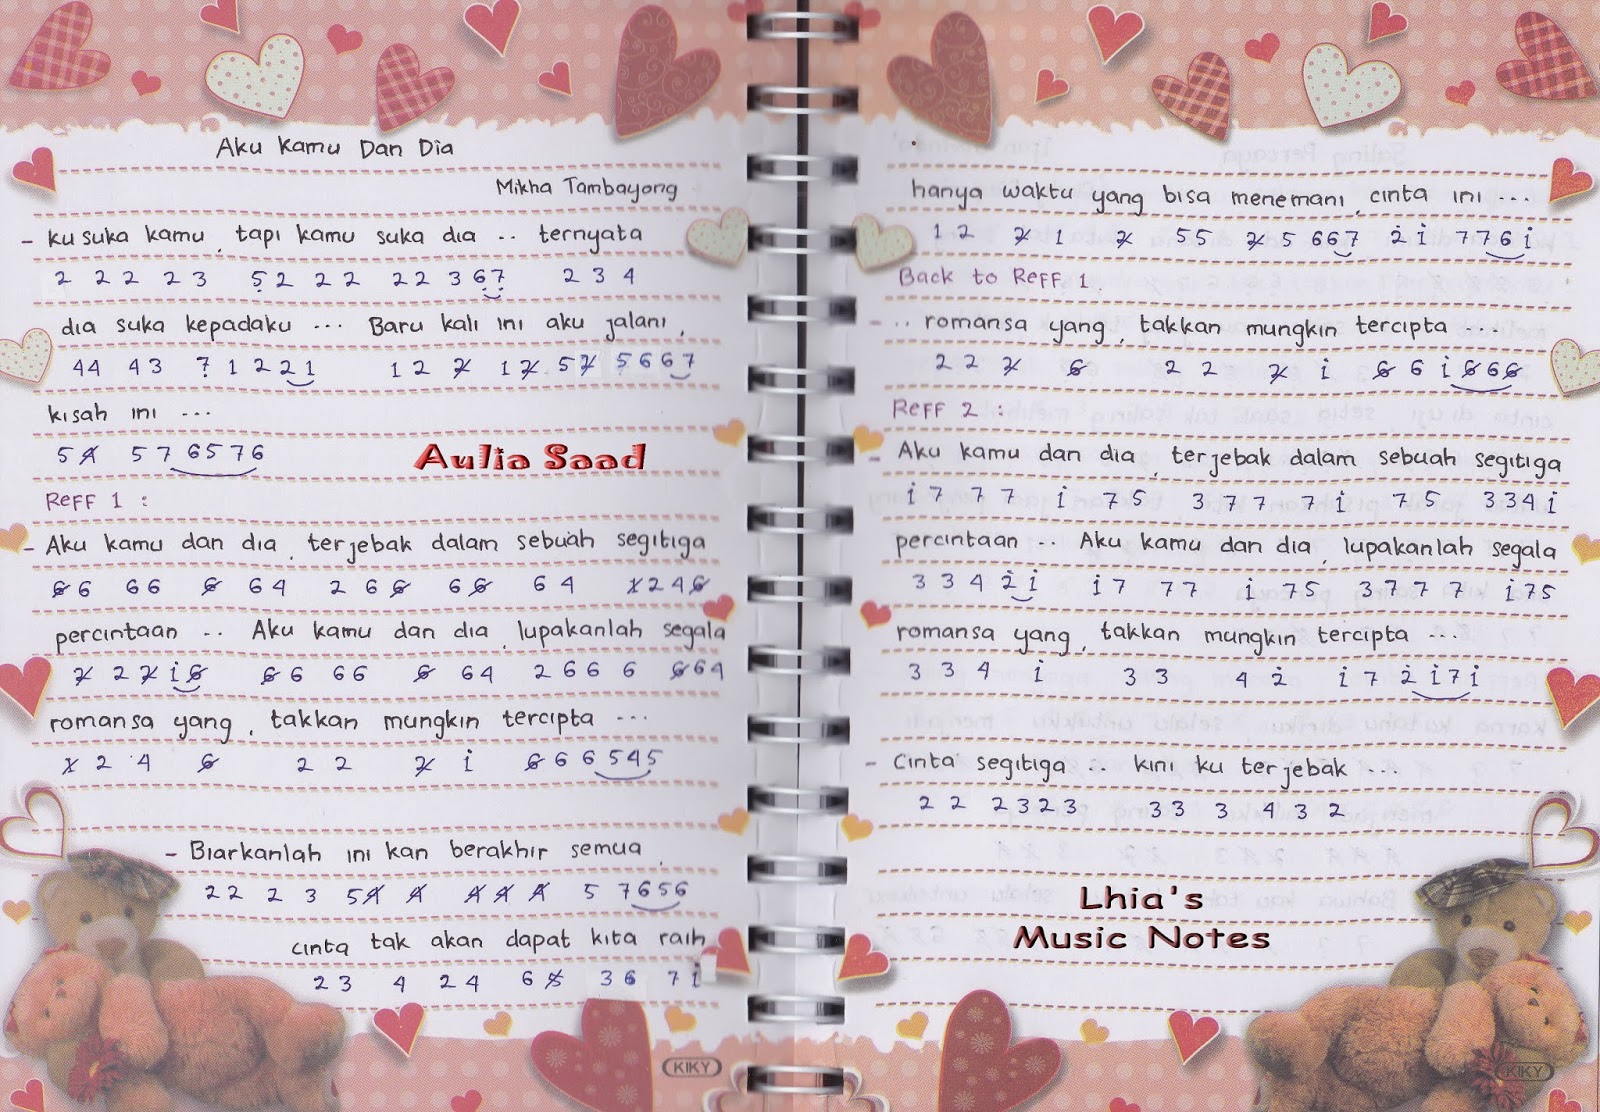 Aku Kamu Dan Dia
Mikha Tambayong
- ku suka kamu, tapi kamu suka dia .. ternyata
2 2 2 2 3 5̣ 2 2 2 2 2 3 6̣ 7̣ 2 3 4
dia suka kepadaku ... Baru kali ini aku jalani,
4 4 4 3 7̣ 1 2 2 1 1 2 2̸ 1 2̸ 5 2̸ 5 6 6 7
kisah ini ...
5 4̸ 5 7 6 5 7 6
Aulia Saad
Reff 1 :
- Aku kamu dan dia, terjebak dalam sebuah segitiga
6̸ 6 6 6 6̸ 6 4 2 6 6̸ 6 6̸ 6 4 1̸ 2 4 6̸
percintaan .. Aku kamu dan dia, lupakanlah segala
2̸ 2 2̸ i 6̸ 6̸ 6 6 6 6̸ 6 4 2 6 6 6 6̸ 6 4
romansa yang, takkan mungkin tercipta ...
1̸ 2 4 6̸ 2 2 2̸ i 6̸ 6 6 5 4 5
- Biarkanlah ini kan berakhir semua,
2 2 2 3 5 4̸ 4̸ 4̸ 4̸ 4̸ 5 7 6 5 6
cinta tak akan dapat kita raih
2 3 4 2 4 6 5̸ 3 6 7 i
KIKY
hanya waktu yang bisa menemani, cinta ini ...
1 2 2̸ 1 2̸ 5 5 2̸ 5 6 6 7 2̇ i 7 7 6 i
Back to Reff 1.
- .. romansa yang, takkan mungkin tercipta ...
2 2 2̸ 6̸ 2 2 2̸ i 6̸ 6 i 6̸ 6 6̸
Reff 2 :
- Aku kamu dan dia, terjebak dalam sebuah segitiga
i 7 7 7 i 7 5 3 7 7 7 i 7 5 3 3 4 i
percintaan .. Aku kamu dan dia, lupakanlah segala
3 3 4 2̇ i i 7 7 7 i 7 5 3 7 7 7 i 7 5
romansa yang, takkan mungkin tercipta ...
3 3 4 i 3 3 4 2̇ i 7 2̇ i 7 i
- Cinta segitiga .. kini ku terjebak ...
2 2 2 3 2 3 3 3 3 4 3 2
Lhia's
Music Notes
KIKY